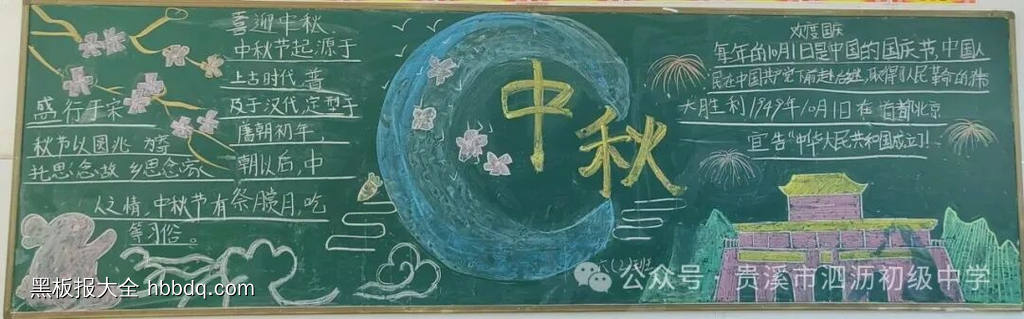 喜迎中秋
中秋节起源于
上古时代,普
及于汉代,定型于
唐朝初年,
盛行于宋
朝以后,中
秋节以圆兆
托思念故乡思念亲
人之情,中秋节有祭月赏月,吃
等习俗。
中秋
欢度国庆
每年的10月1日是中国的国庆节,中国人
民在中国共产党
取得了人民革命的伟
大胜利1949年10月1日在首都北京
宣告“中华人民共和国成立!
黑板报大全 hbbdq.com
公众号 贵溪市泗沥初级中学